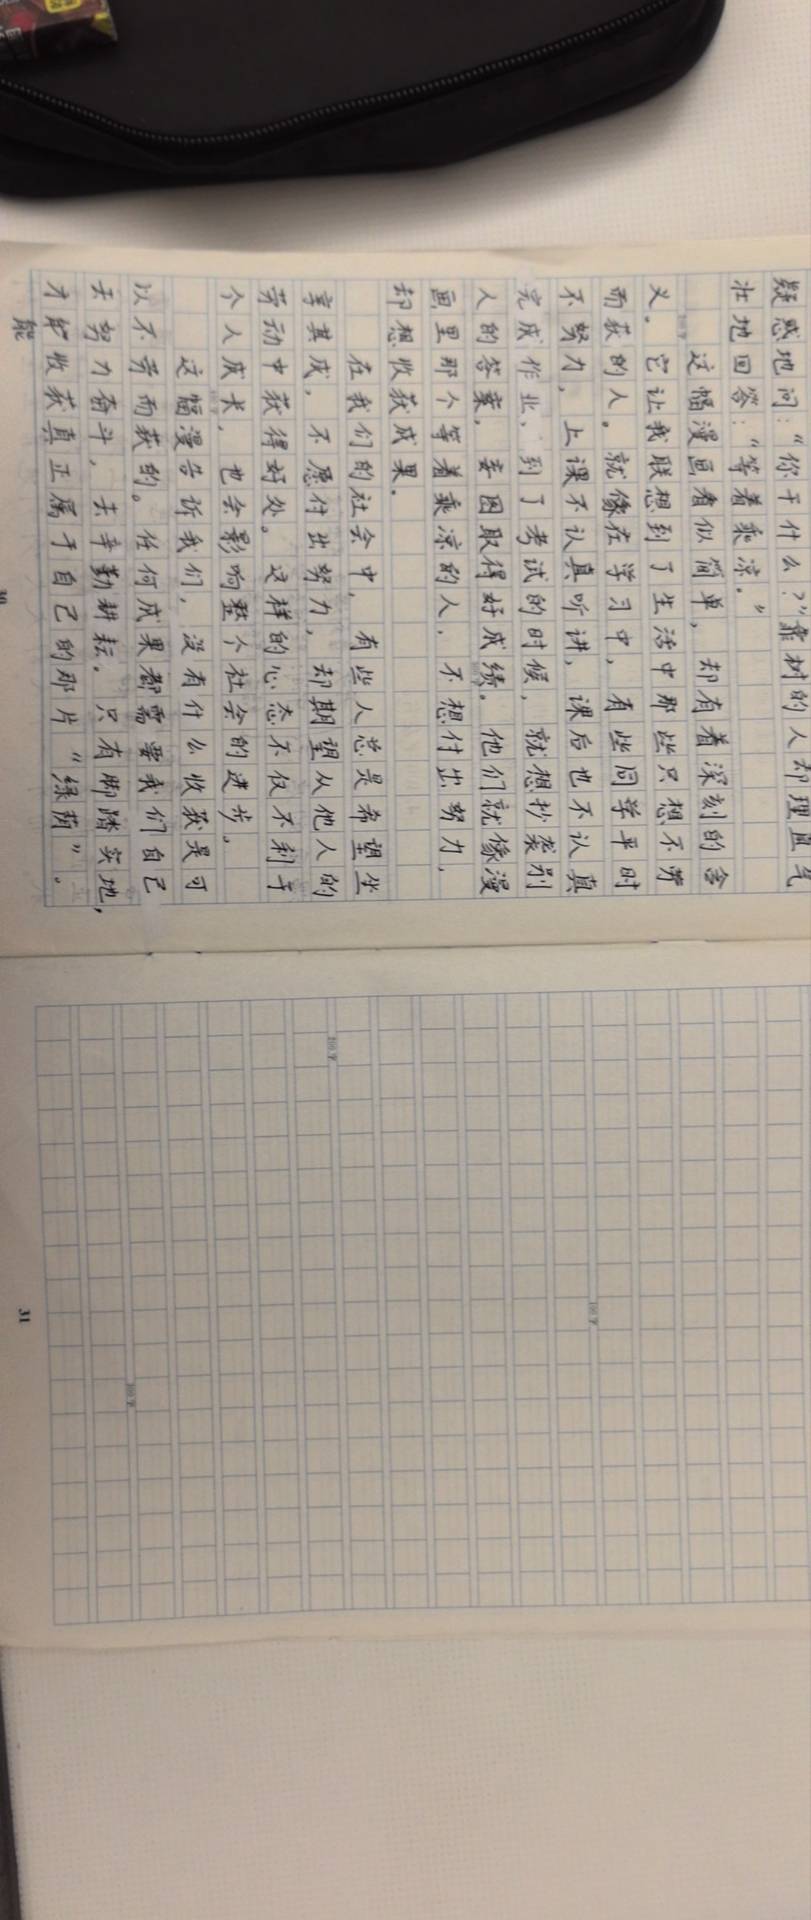 疑惑地问：“你干什么？”靠树的人却理直气
壮地回答：“等着乘凉。”
这幅漫画看似简单，却有着深刻的含
义。它让我联想到了生活中那些只想不劳
而获的人。就像在学习中，有些同学平时
不努力，上课不认真听讲，课后也不认真
完成作业、到了考试的时候，就想抄袭别
人的答案，妄图取得好成绩。他们就像漫
画里那个等着乘凉的人，不想付出努力，
却想收获成果。
在我们的社会中，有些人总是希望坐
享其成，不愿付出努力，却期望从他人的
劳动中获得好处。这样的心态不仅不利于
个人成长，也会影响整个社会的进步。
这幅漫告诉我们，没有什么收获是可
以不劳而获的。任何成果都需要我们自己
去努力奋斗，去辛勤耕耘。只有脚踏实地，
才能收获真正属于自己的那片“绿荫”。
能
30
200字
100字
300字
31